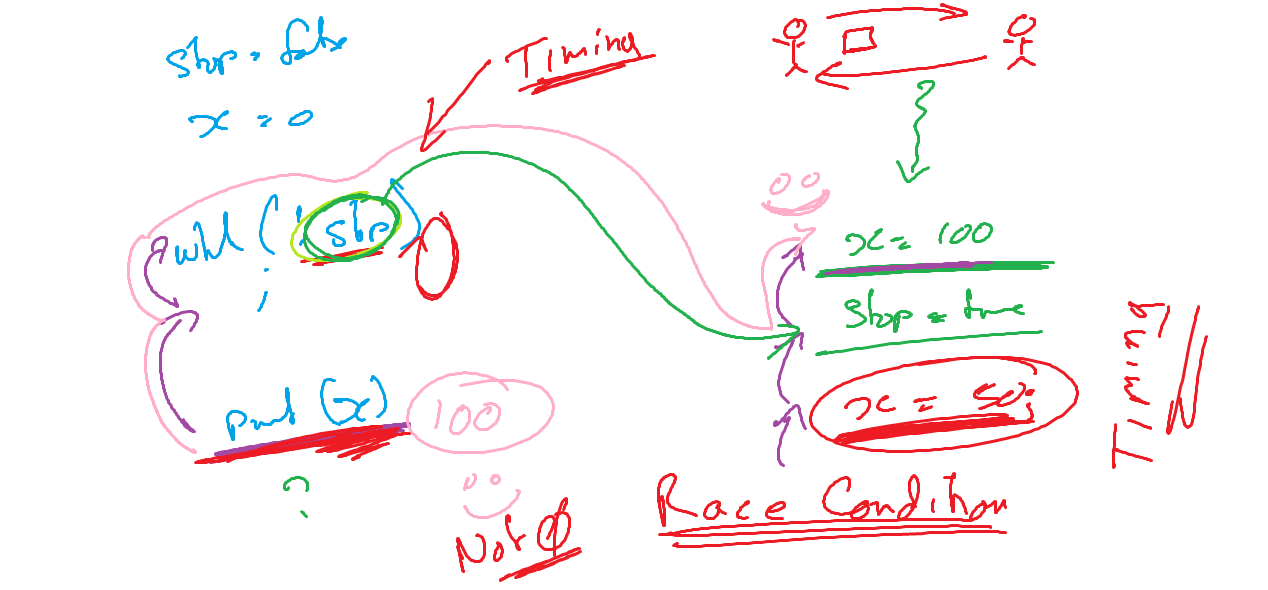 stop = false
x = 0
Timing
while ( ! stop )
;
print (x)
100
?
Not 0
x = 100
stop = true
x = 50;
Race Condition
Timing